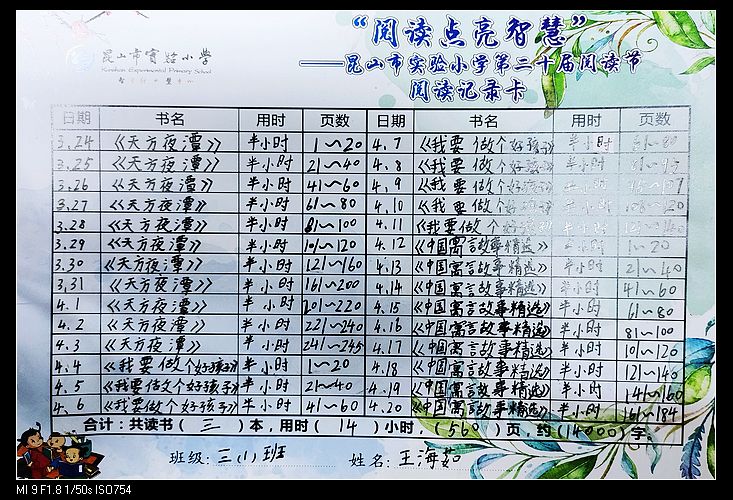 “阅读点亮智慧”
昆山市实验小学
Kunshan Experimental Primary School
——昆山市实验小学第二十届阅读节
阅读记录卡
日期 书名 用时 页数 日期 书名 用时 页数
3.24 《天方夜潭》 半小时 1～20 4.7 《我要做个好孩子》 半小时 61～80
3.25 《天方夜潭》 半小时 21～40 4.8 《我要做个好孩子》 半小时 81～95
3.26 《天方夜潭》 半小时 41～60 4.9 《我要做个好孩子》 半小时
3.27 《天方夜潭》 半小时 61～80 4.10 《我要做个好孩子》 半小时
3.28 《天方夜潭》 半小时 81～100 4.11 《我要做个好孩子》 半小时
3.29 《天方夜潭》 半小时 101～120 4.12 《中国寓言故事精选》 半小时 1～20
3.30 《天方夜潭》 半小时 121～160 4.13 《中国寓言故事精选》 半小时 21～40
3.31 《天方夜潭》 半小时 161～200 4.14 《中国寓言故事精选》 半小时 41～60
4.1 《天方夜潭》 半小时 201～220 4.15 《中国寓言故事精选》 半小时 61～80
4.2 《天方夜潭》 半小时 221～240 4.16 《中国寓言故事精选》 半小时 81～100
4.3 《天方夜潭》 半小时 241～245 4.17 《中国寓言故事精选》 半小时 101～120
4.4 《我要做个好孩子》 半小时 1～20 4.18 《中国寓言故事精选》 半小时 121～140
4.5 《我要做个好孩子》 半小时 21～40 4.19 《中国寓言故事精选》 半小时 141～160
4.6 《我要做个好孩子》 半小时 41～60 4.20 《中国寓言故事精选》 半小时 161～184
合计：共读书（三）本，用时（14）小时，（560）页，约（14000）字。
班级：三（1）班 姓名：王海茹
MI 9 F1.8 1/50s ISO754